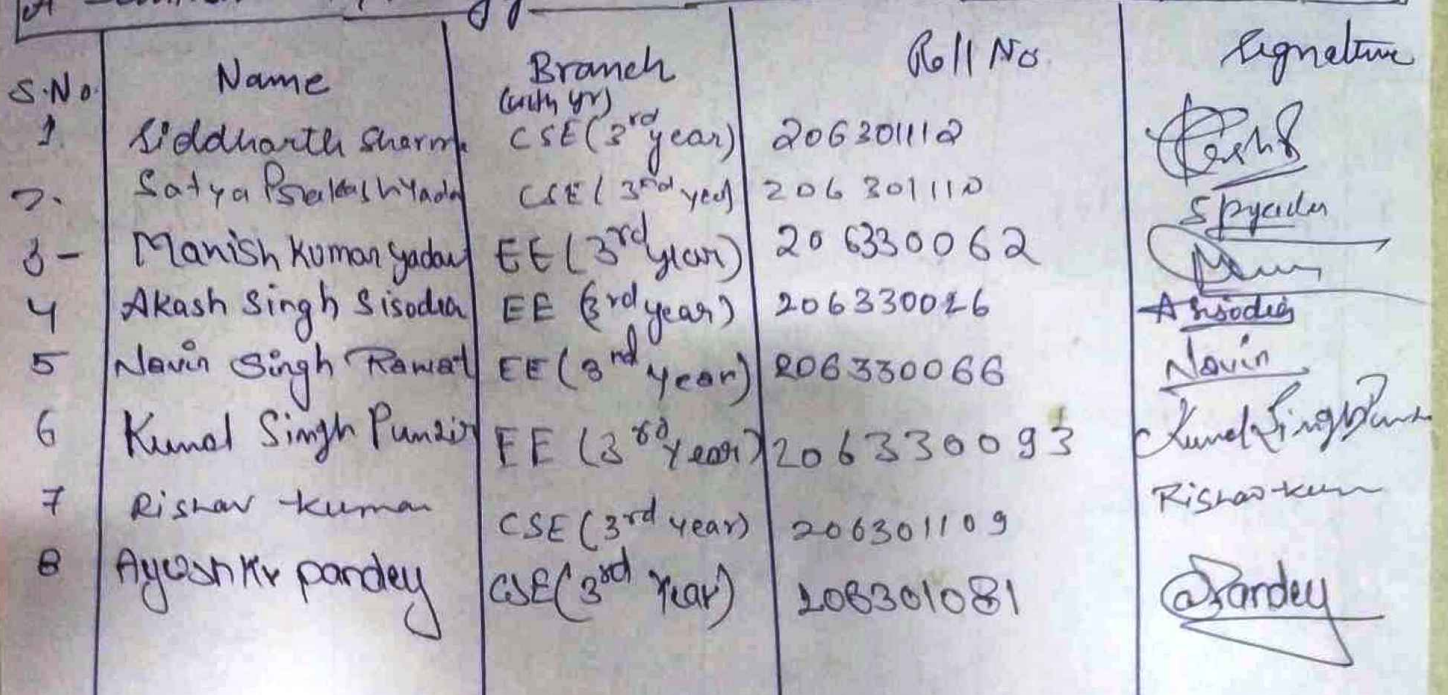 S.No. Name Branch (with yr) Roll No. Signature
1. Siddharth Sharma CSE (3rd year) 206301112
2. Satya Prakash Yadav CSE (3rd year) 206301110 Spyadav
3- Manish Kumar yadav EE (3rd year) 206330062
4 Akash Singh Sisodia EE (3rd year) 206330026 Asisodia
5 Navin Singh Rawat EE (3rd year) 206330066 Navin
6 Kunal Singh Pundir EE (3rd year) 206330093 Kunal Singh Pundir
7 Rishav kumar CSE (3rd year) 206301109 Rishav kumar
8 Ayush Kr pandey CSE (3rd Year) 206301081 Pandey